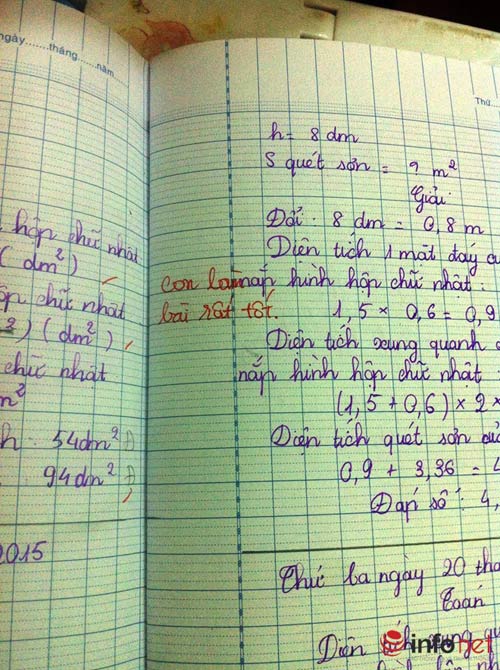 ngày......tháng......năm
hộp chữ nhật
(dm²)
hộp chữ nhật
²) (dm²)
chữ nhật
m²
h: 54dm² Đ
94dm² Đ
2015
Thứ
h = 8 dm
S quét sơn = ? m²
Giải:
Đổi: 8 dm = 0,8 m
Diện tích 1 mặt đáy
con làm nắp hình hộp chữ nhật:
bài rất tốt. 1,5 × 0,6 = 0,9
Diện tích xung quanh
nắp hình hộp chữ nhật
(1,5 + 0,6) × 2 ×
Diện tích quét sơn của
0,9 + 3,36 = 4
Đáp số: 4,
Thứ ba ngày 20
Toán
Diện tích xung
infonet